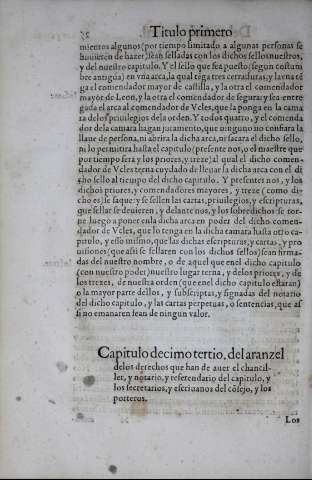 Titulo primero
mientos algunos (por tiempo limitado a algunas personas se
huuieren de hazer) sean selladas con los dichos sellos nuestros,
y del nuestro capitulo. Y el sello que sea puesto (segun costum
bre antigua) en vna arca, la qual tēga tres cerraduras, y la vna tē
ga el comendador mayor de castilla, y la otra el comendador
mayor de Leon, y la otra el comendador de segura: y sea entre
gada el arca al comendador de Vcles, que la ponga en la cama
ra de los priuilegios de la orden. Y todos quatro, y el comenda
dor de la camara hagan juramento, que ninguno no confiara la
llaue de persona, ni abrira la dicha arca, ni sacara el dicho sello,
ni lo permitira hasta el capitulo (presente nos, o el maestre que
por tiempo sera y los priores, y treze) al qual el dicho comen-
dador de Vcles terna cuydado de lleuar la dicha arca con el di
cho sello al tiempo del dicho capitulo. Y presentes nos, y los
dichos priores, y comendadores mayores, y treze (como di-
cho es) se saque: y se sellen las cartas, priuilegios, y escripturas,
que sellar se deuieren, y delante nos, y los sobredichos se tor-
ne luego a poner en la dicha arca en poder del dicho comen-
dador de Vcles, que lo tenga en la dicha camara hasta otro ca-
pitulo, y esso mismo, que las dichas escripturas, y cartas, y pro
uisiones (que assi se sellaren con los dichos sellos) sean firma-
das del nuestro nombre, o de aquel que en el dicho capitulo
(con nuestro poder) nuestro lugar terna, y de los priores, y de
los trezes, de nuestra orden (que en el dicho capitulo estaran)
o la mayor parte dellos, y subscriptas, y signadas del notario
del dicho capitulo, y las cartas perpetuas, o sentencias, que as
si no emanaren sean de ningun valor.
Capitulo decimo tertio, del aranzel
de los derechos que han de auer el chancil-
ler, y notario, y referendario del capitulo, y
los secretarios, y escriuanos del cōsejo, y los
porteros.
Los